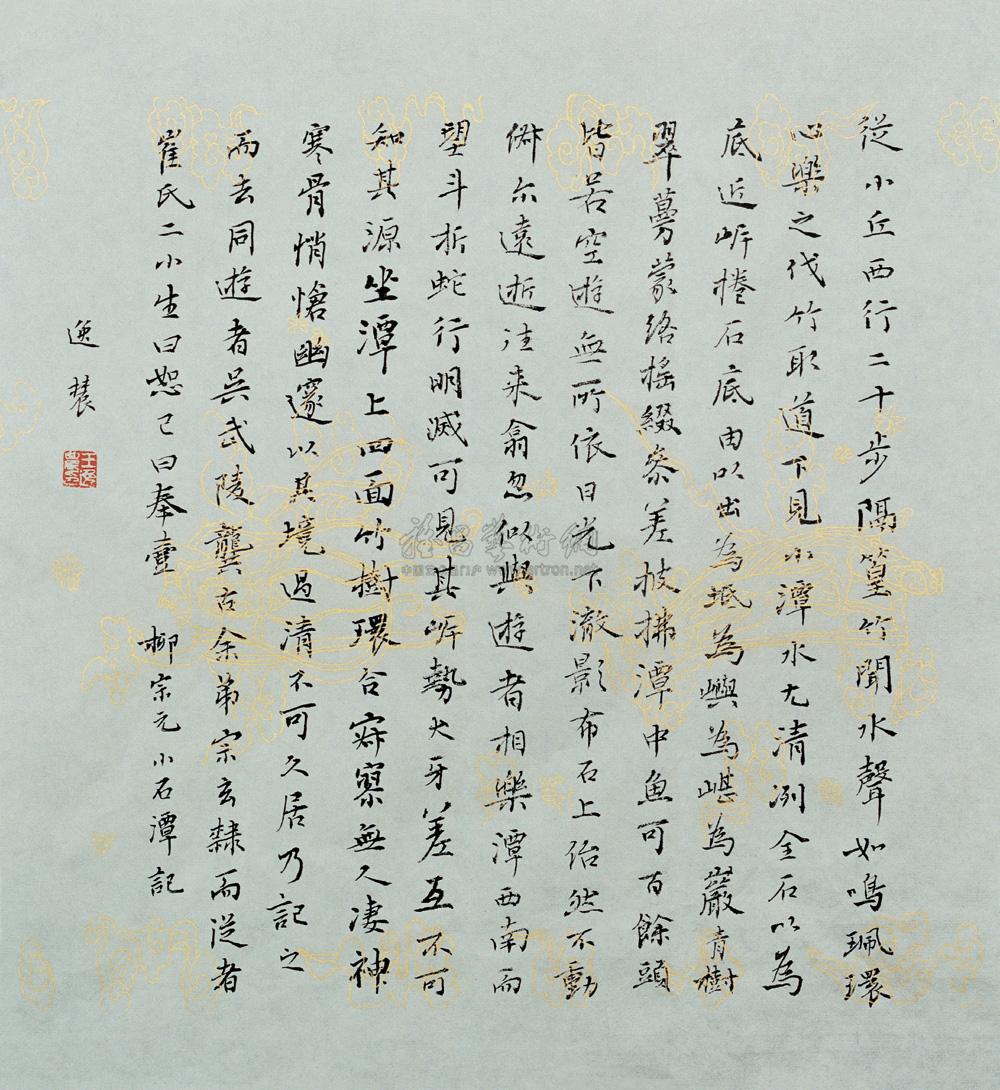 從小丘西行二十步隔篁竹聞水聲如鳴珮環
心樂之伐竹取道下見小潭水尤清洌全石以為
底近岸捲石底由以出為坻為嶼為嵁為巖青樹
翠蔓蒙絡搖綴參差披拂潭中魚可百餘頭
皆若空遊無所依日光下澈影布石上佁然不動
俶尔遠逝往来翕忽似與遊者相樂潭西南而
望斗折蛇行明滅可見其岸勢犬牙差互不可
知其源坐潭上四面竹樹環合寂寥無人凄神
寒骨悄愴幽邃以其境過清不可久居乃記之
而去同遊者吳武陵龔古余弟宗玄隸而從者
崔氏二小生曰恕己曰奉壹 柳宗元小石潭記
逸
雅昌藝術網
www.artron.net